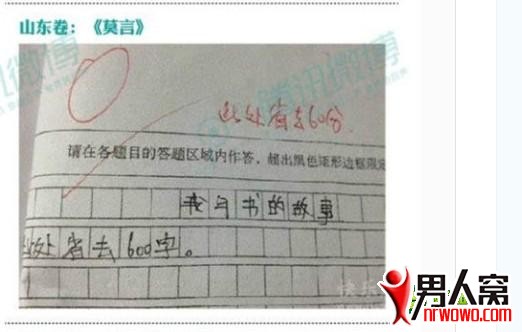 山东卷：《莫言》
腾讯微博
此处省去60分.
请在各题目的答题区域内作答，超出黑色矩形边框限定
我与书的故事
此处省去600字。
男人窝
nrwowo.com